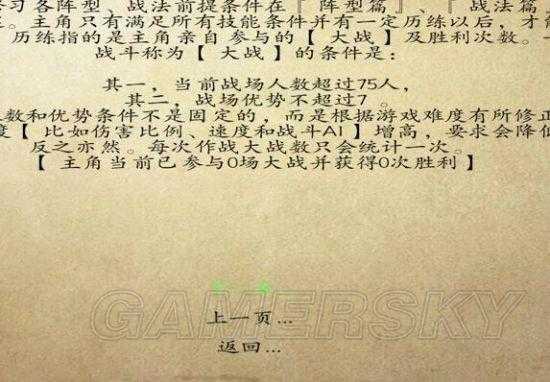 习各阵型、战法前提条件在『阵型篇』、『战法篇
。主角只有满足所有技能条件并有一定历练以后，才
历练指的是主角亲自参与的【 大战】及胜利次数。
战斗称为【 大战】的条件是：
其一，当前战场人数超过75人，
其二，战场优势不超过7 。
数和优势条件不是固定的，而是根据游戏难度有所修正
度【 比如伤害比例、速度和战斗AI】增高，要求会降低
反之亦然。每次作战大战数只会统计一次。
【 主角当前已参与0场大战并获得0次胜利】
GAMERSKY
上一页...
返回...